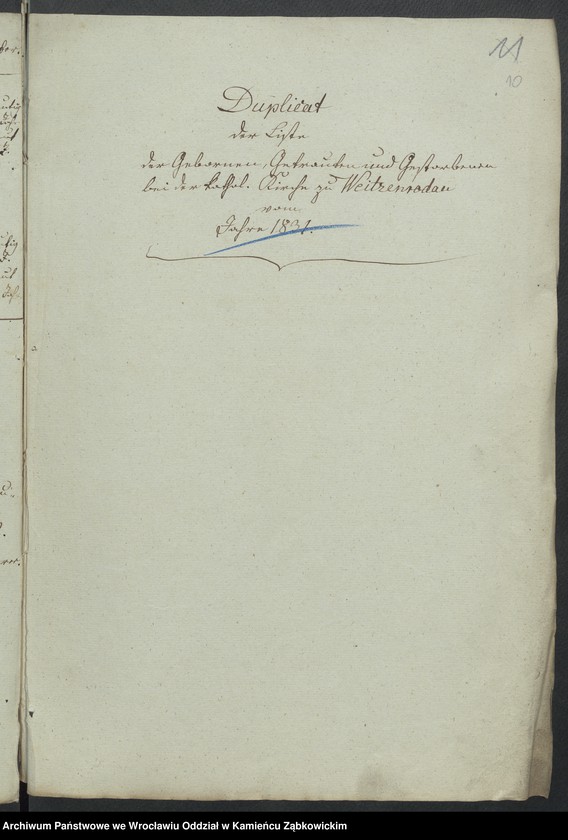 11
10
Duplicat
der Liste
der Gebornen, Getrauten und Gestorbenen
bei der kathol. Kirche zu Weitzenrodau
vom
Jahre 1831.
Archiwum Państwowe we Wrocławiu Oddział w Kamieńcu Ząbkowickim